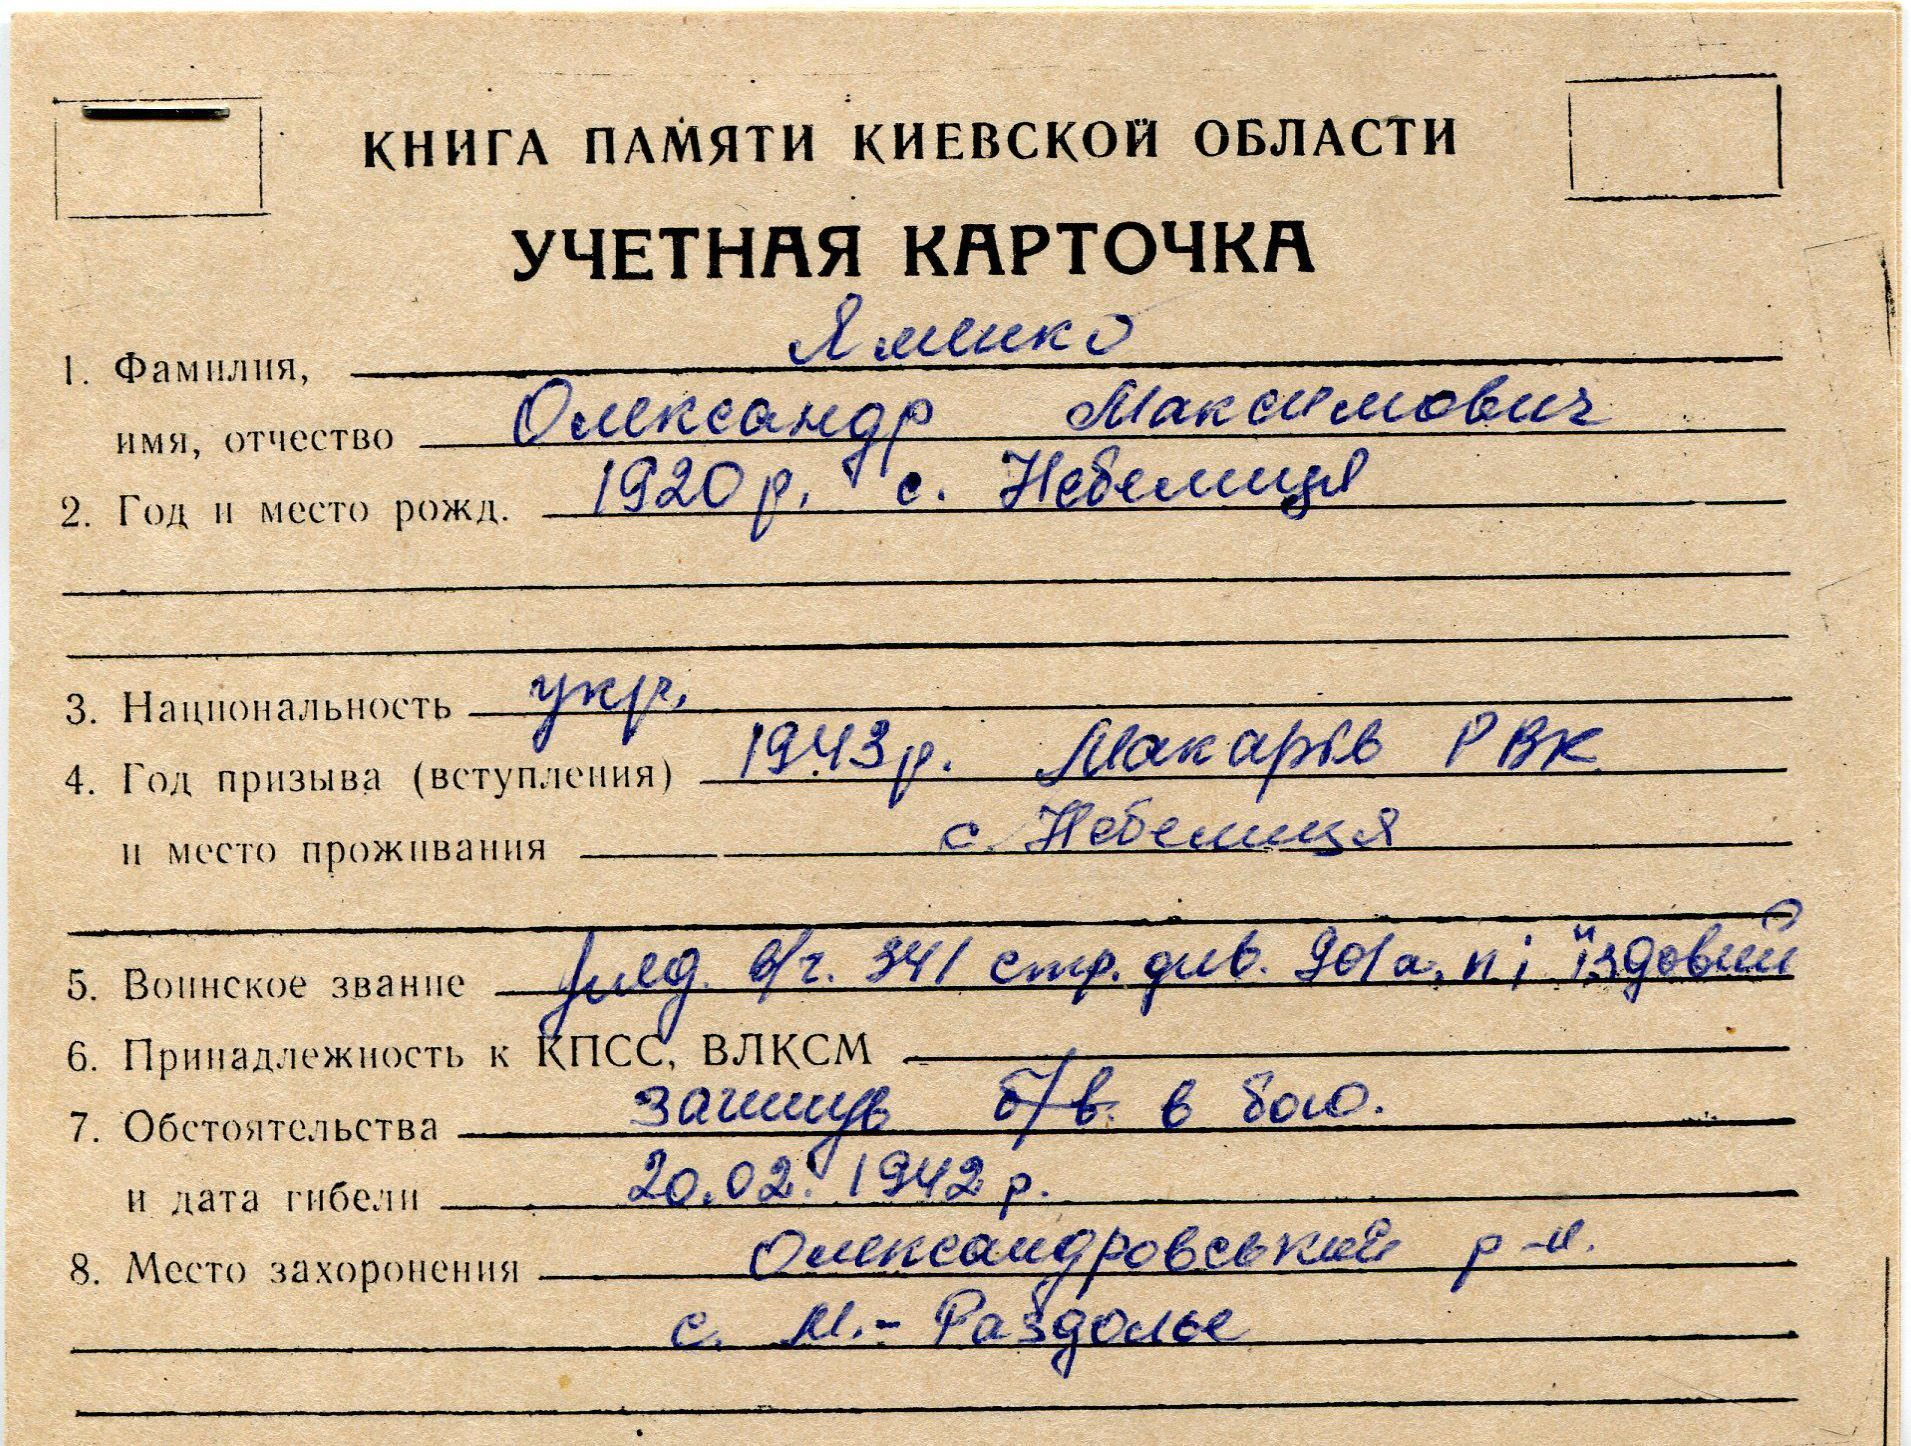 КНИГА ПАМЯТИ КИЕВСКОЙ ОБЛАСТИ
УЧЕТНАЯ КАРТОЧКА
1. Фамилия, Яменко
имя, отчество Олександр Максимович
2. Год и место рожд. 1920 р. с. Небелиця
3. Национальность укр.
4. Год призыва (вступления) 1943 р. Макарів РВК
и место проживания с. Небелиця
5. Воинское звание в/ч. 341 стр. див. їздовий
6. Принадлежность к КПСС, ВЛКСМ
7. Обстоятельства загинув б/в. в бою.
и дата гибели 20.02.1942 р.
8. Место захоронения Олександровський р-н.
с. М.-Раздолье